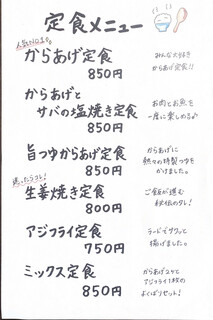 定食メニュー
人気No.1!
からあげ定食
850円
みんな大好き
からあげ定食!!
からあげと
サバの塩焼き定食
850円
お肉とお魚を
一度に楽しめる♪
旨つゆからあげ定食
850円
からあげに
熱々の特製つゆを
かけました。
迷ったらコレ!
生姜焼き定食
800円
ご飯が進む
秘伝のタレ!
アジフライ定食
750円
ラードでサクッと
揚げました。
ミックス定食
850円
からあげ2ケと
アジフライ1枚の
よくばりセット!